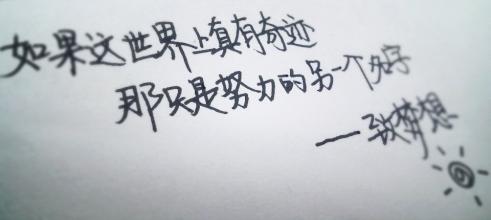 如果这世界上真有奇迹
那只是努力的另一个名字
——致梦想